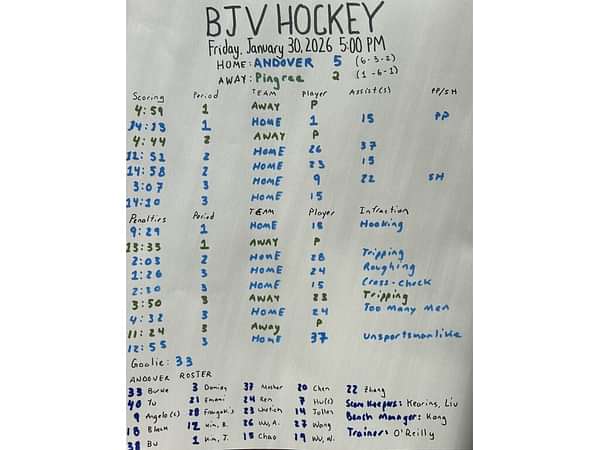 BJV HOCKEY
Friday, January 30, 2026 5:00 PM
HOME: ANDOVER 5 (6-3-2)
AWAY: Pingree 2 (1-6-1)
Scoring Period TEAM Player Assist(s) PP/SH
4:59 1 AWAY P
14:13 1 HOME 1 15 PP
4:44 2 AWAY P
12:52 2 HOME 26 37
14:58 2 HOME 23 15
3:07 3 HOME 9 22 SH
14:10 3 HOME 15
Penalties Period TEAM Player Infraction
9:29 1 HOME 18 Hooking
13:35 1 AWAY P
2:03 2 HOME 28 Tripping
1:26 3 HOME 24 Roughing
2:30 3 HOME 15 Cross-check
3:50 3 AWAY 23 Tripping
4:32 3 HOME 24 Too Many Men
11:24 3 Away P
12:55 3 HOME 37 Unsportsmanlike
Goalie: 33
ANDOVER ROSTER
33 Burke 3 Doming 37 Mosher 20 Chen 22 Zhang
40 Yu 21 Emami 24 Ren 7 Hu(c) Score Keepers: Kearins, Liu
9 Angelo(c) 28 23 14 Tollen Bench Manager: Kong
18 Black 12 Kim, B. 26 Wu, A. 27 Wang Trainer: O'Reilly
38 Bu 1 Kim, J. 15 Chao 19 Wu, N.